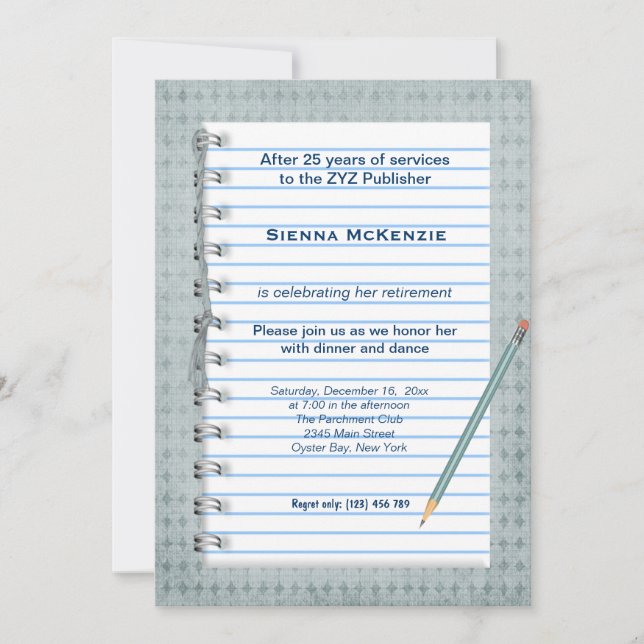 After 25 years of services
to the ZYZ Publisher
Sienna McKenzie
is celebrating her retirement
Please join us as we honor her
with dinner and dance
Saturday, December 16, 20xx
at 7:00 in the afternoon
The Parchment Club
2345 Main Street
Oyster Bay, New York
Regret only: (123) 456 789